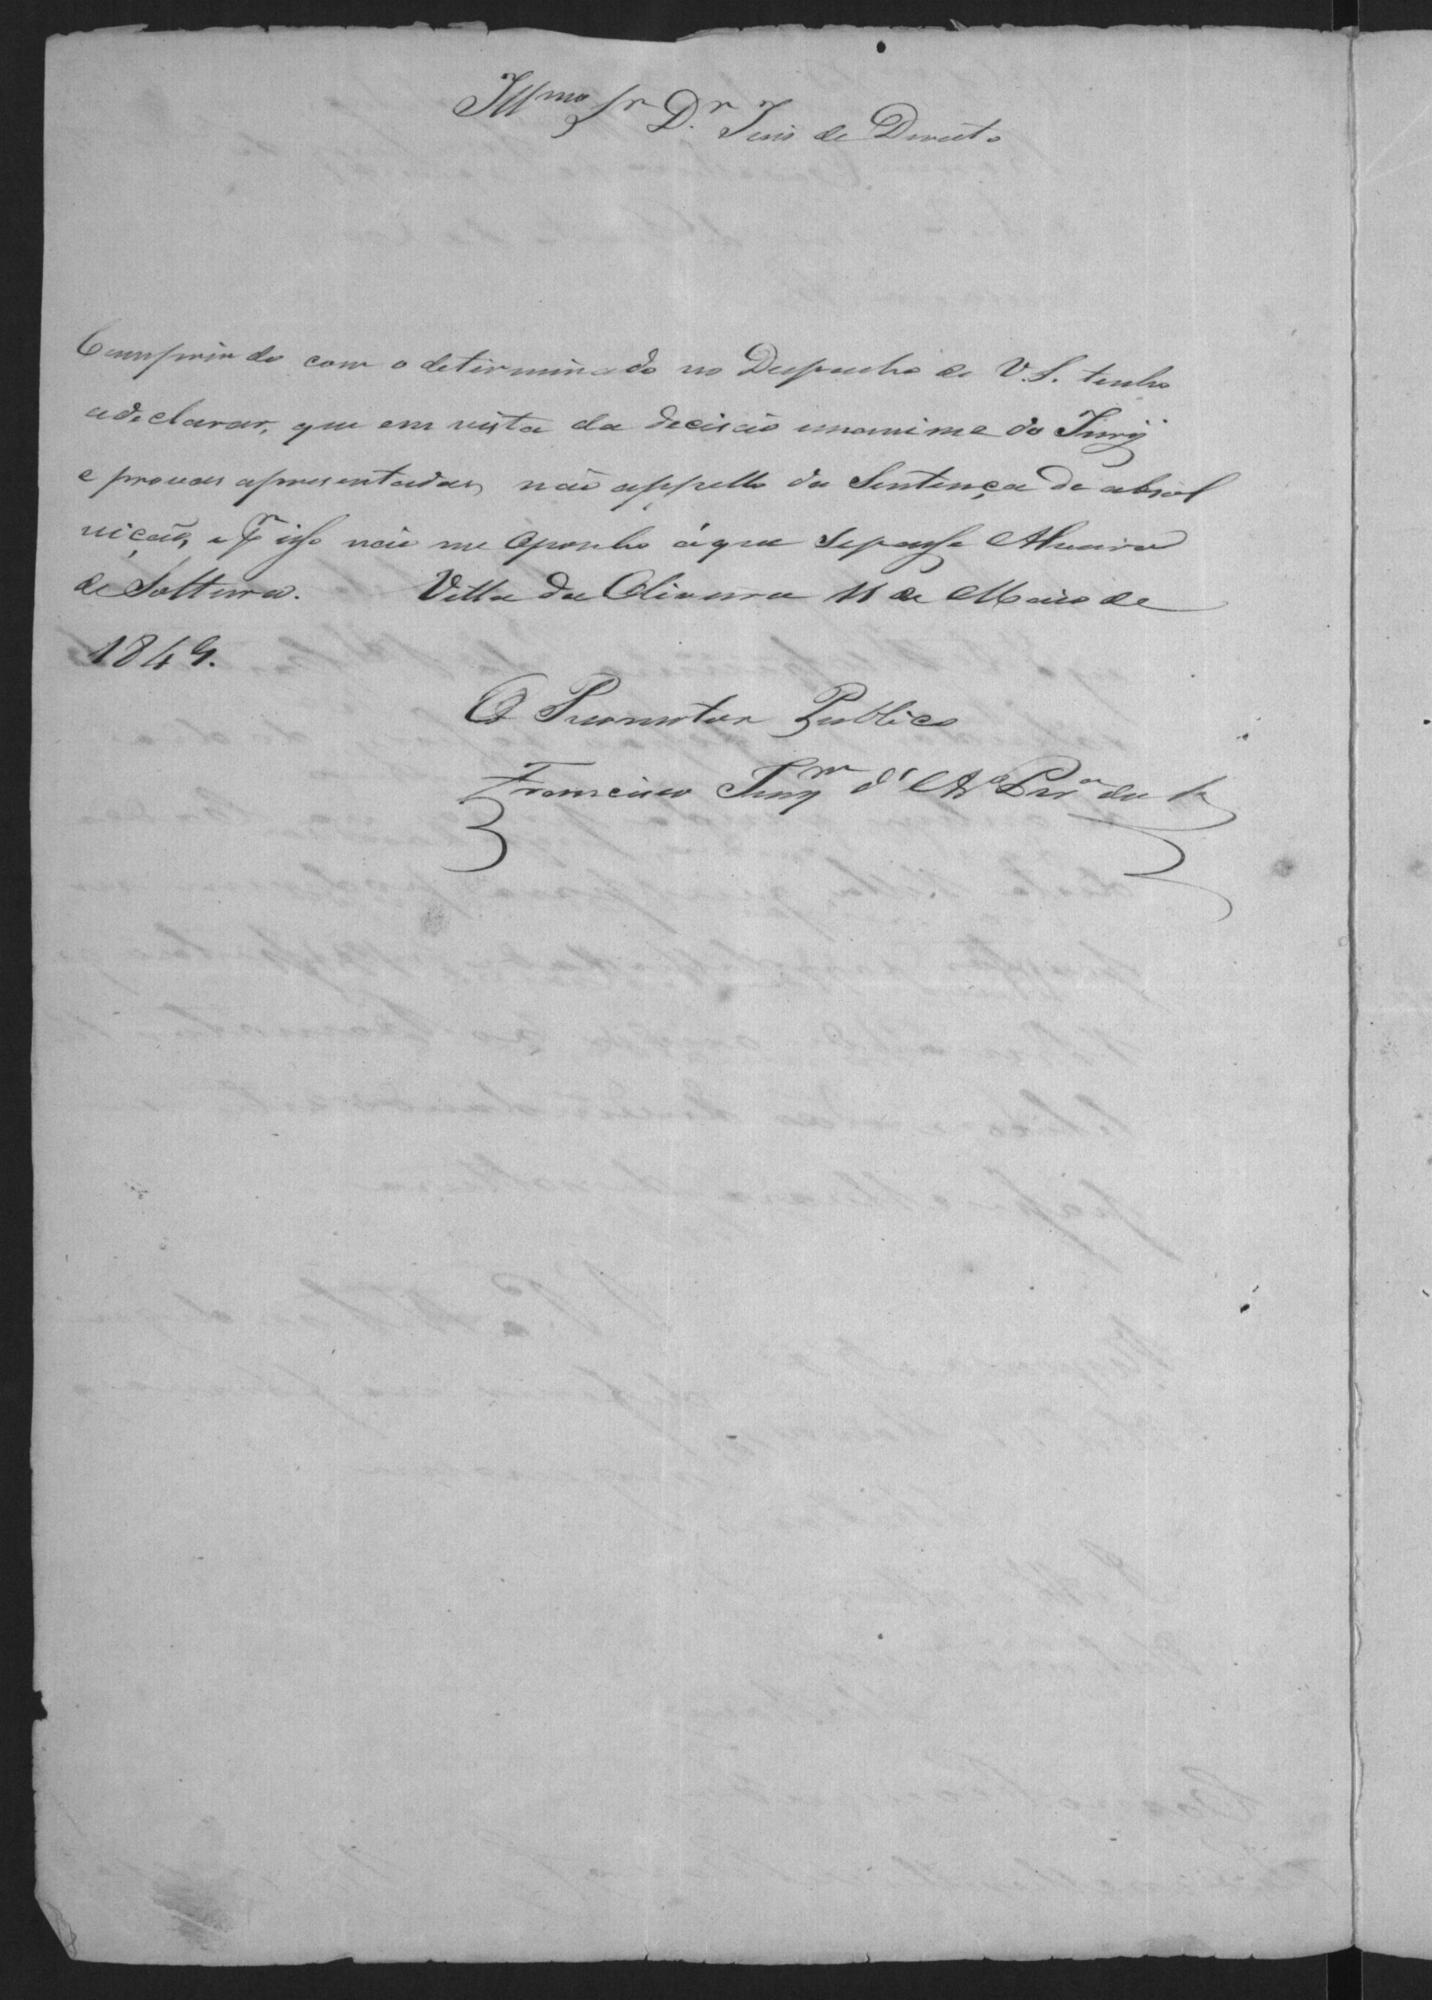 Illmo Sr Dr. Juis de Direito
Cumprindo com o determinado no Despacho de V.S. tenho
adeclarar, que em vista da decisão unanime do Jury
e provas apresentadas, não appello da Sentença de absol
vição, e Pr isso não me Oponho áque Sepasse Alvara
de Solttura. Villa da Oliveira 11 de Maio de
1849.
O Promotor Publico
Francisco